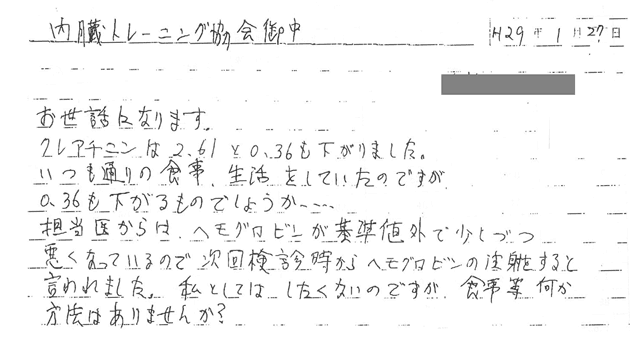 内臓トレーニング協会御中
H29年1月27日
お世話になります。
クレアチニンは2.61と0.36も下がりました。
いつも通りの食事、生活をしていたのですが
0.36も下がるものでしょうか……
担当医からは、ヘモグロビンが基準値外で少しづつ
悪くなっているので次回検診時からヘモグロビンの注射をすると
言われました。私としてはしたくないのですが、食事等何か
方法はありませんか?